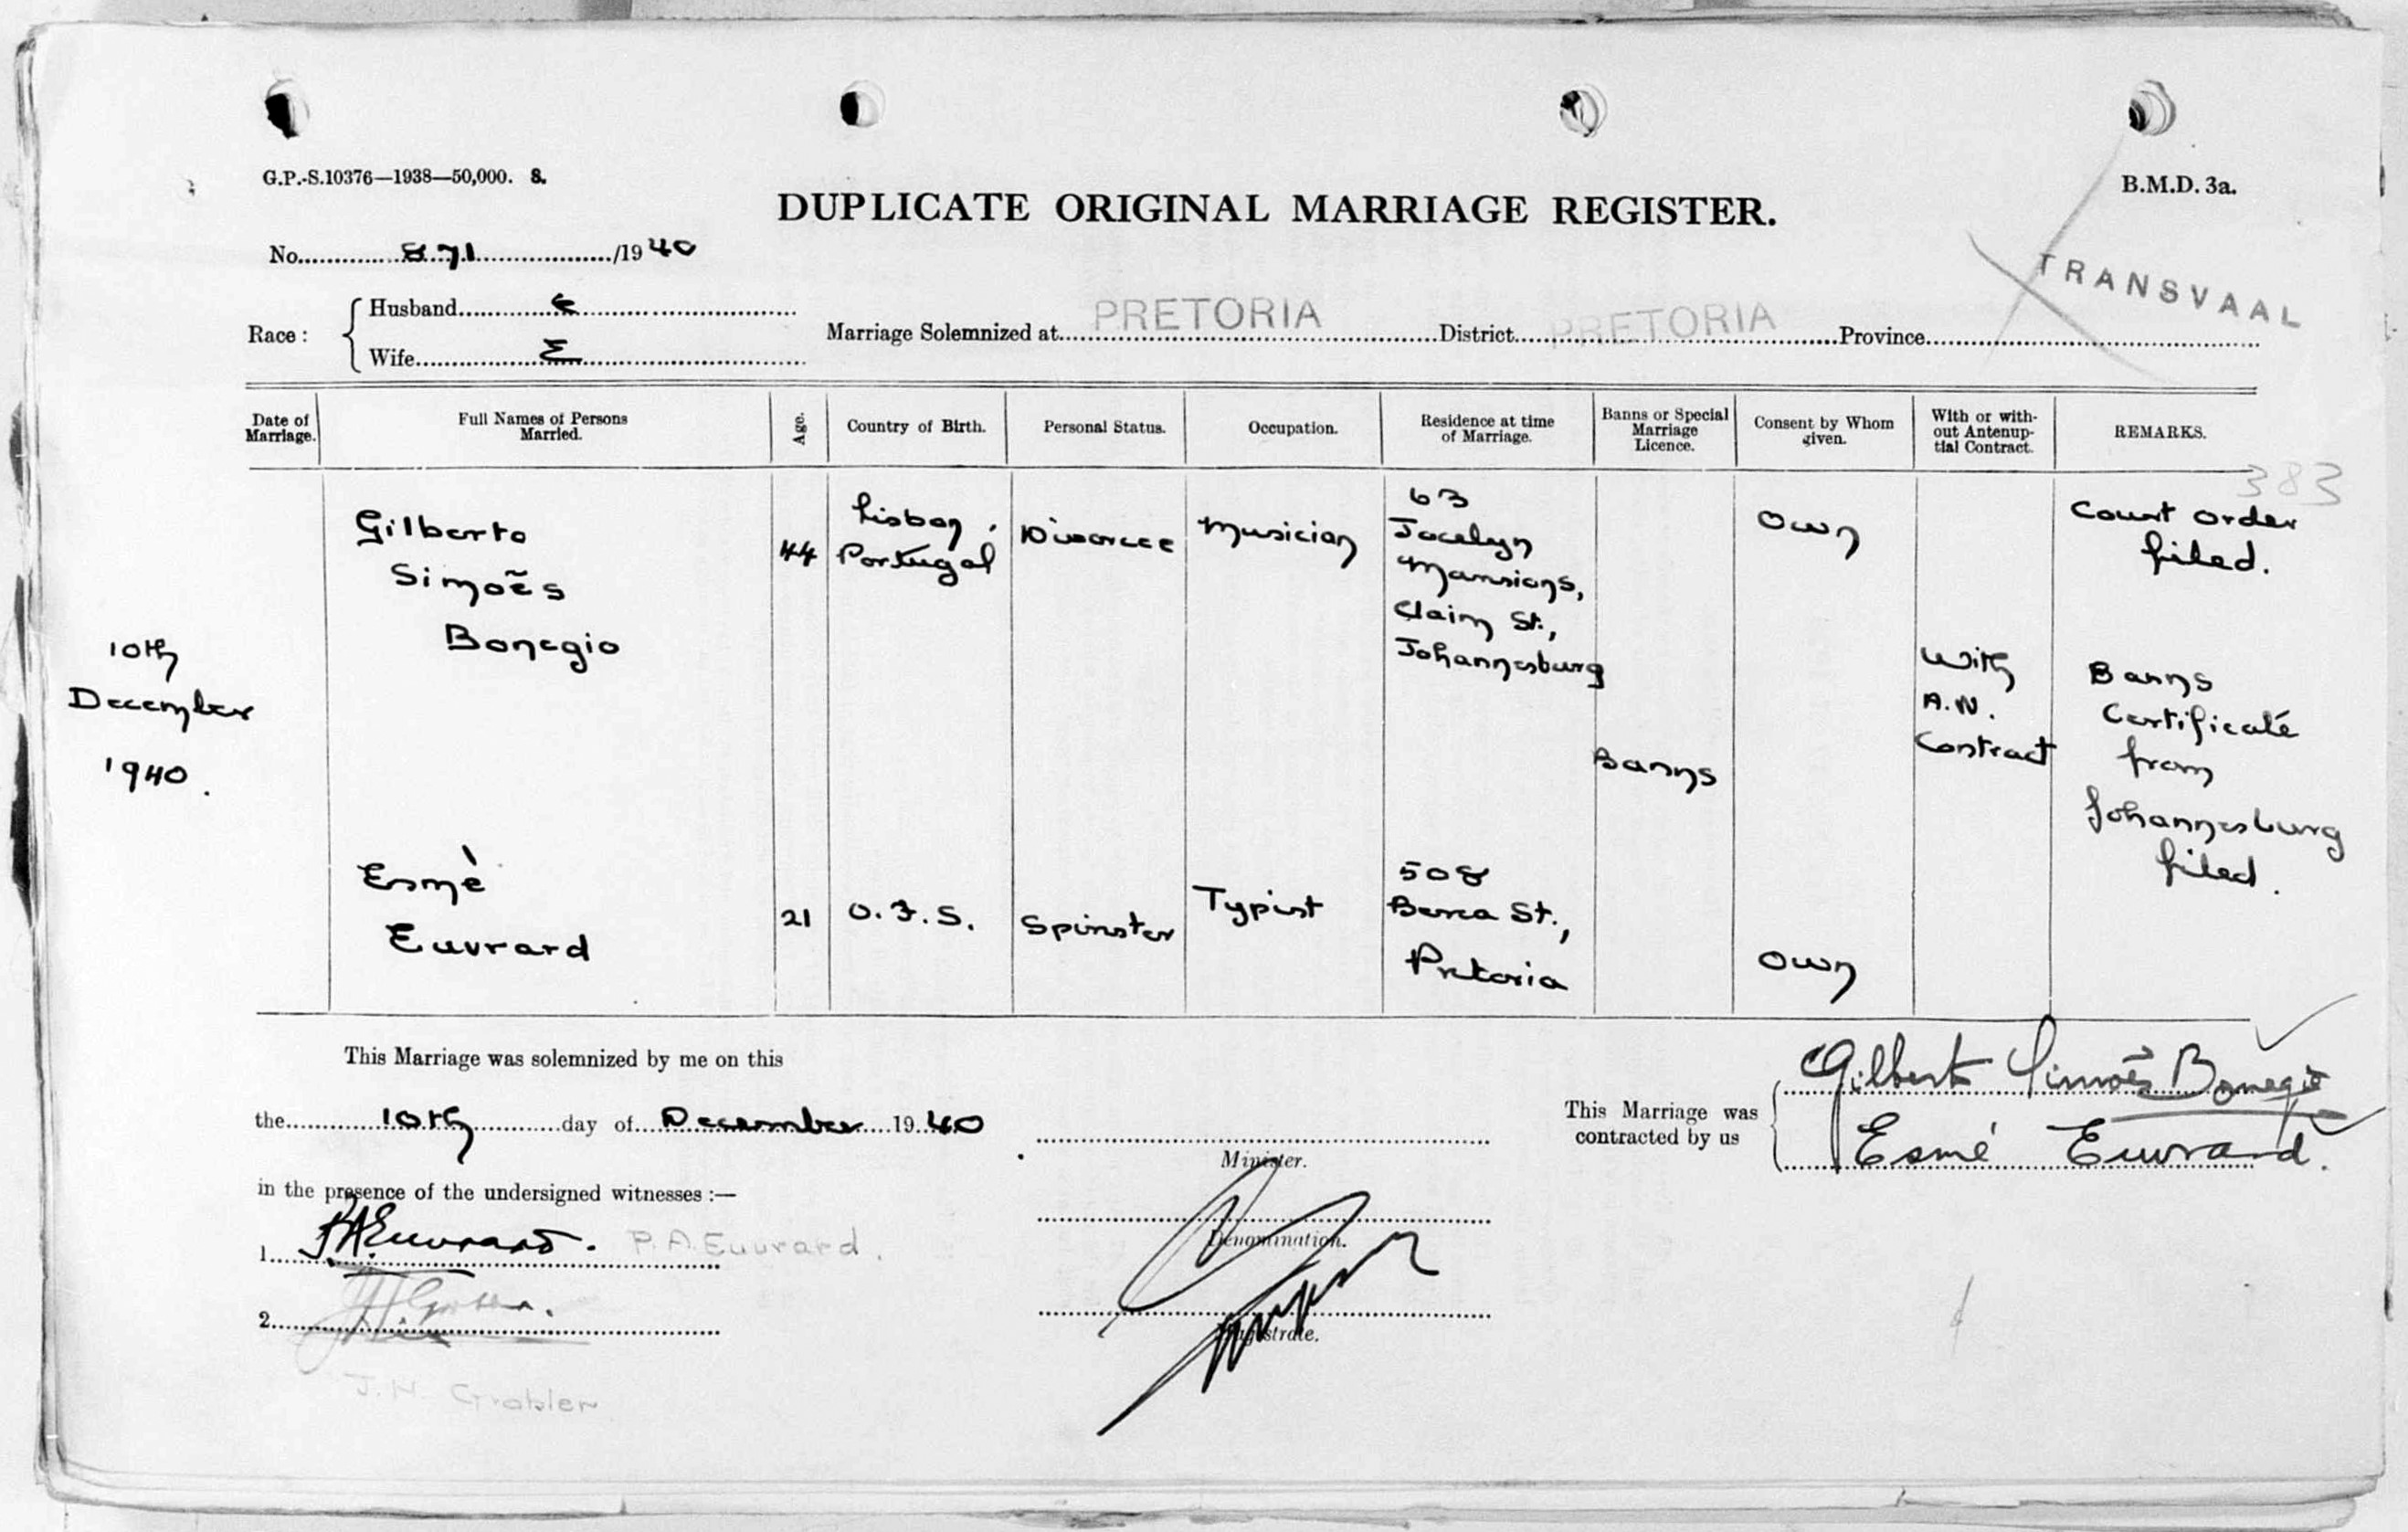 G.P.-S.10376—1938—50,000. S.
B.M.D. 3a.
DUPLICATE ORIGINAL MARRIAGE REGISTER.
No. 871 /1940
TRANSVAAL
Race: Husband E
Wife E
Marriage Solemnized at PRETORIA District PRETORIA Province
Date of Marriage. Full Names of Persons Married. Age. Country of Birth. Personal Status. Occupation. Residence at time of Marriage. Banns or Special Marriage Licence. Consent by Whom given. With or without Antenuptial Contract. REMARKS.
383
10th
December
1940.
Gilberto
Simoẽs
Bonegio
44
Lisbon,
Portugal
Divorcee
Musician
63
Jocelyn
Mansions,
Claim St.,
Johannesburg
Own
Court order
filed.
Banns
With
A.N.
Contract
Banns
Certificate
from
Johannesburg
filed.
Esmè
Euvrard
21
O.F.S.
Spinster
Typist
508
Berea St.,
Pretoria
Own
This Marriage was solemnized by me on this
the 10th day of December 1940
in the presence of the undersigned witnesses :—
1. P.A. Euvrard. P.A. Euvrard.
2.
J. H. Grobler
Minister.
Denomination.
Magistrate.
This Marriage was
contracted by us
Gilberto Simoẽs Bonegio
Esmé Euvrard.